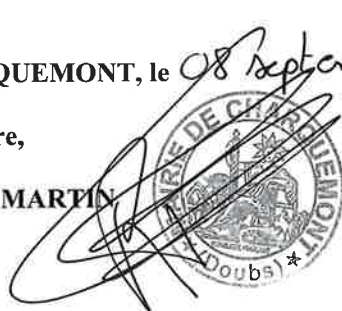 QUEMONT, le 08 Septe
re,
MARTIN
MAIRIE DE CHARQUEMONT
(Doubs) *